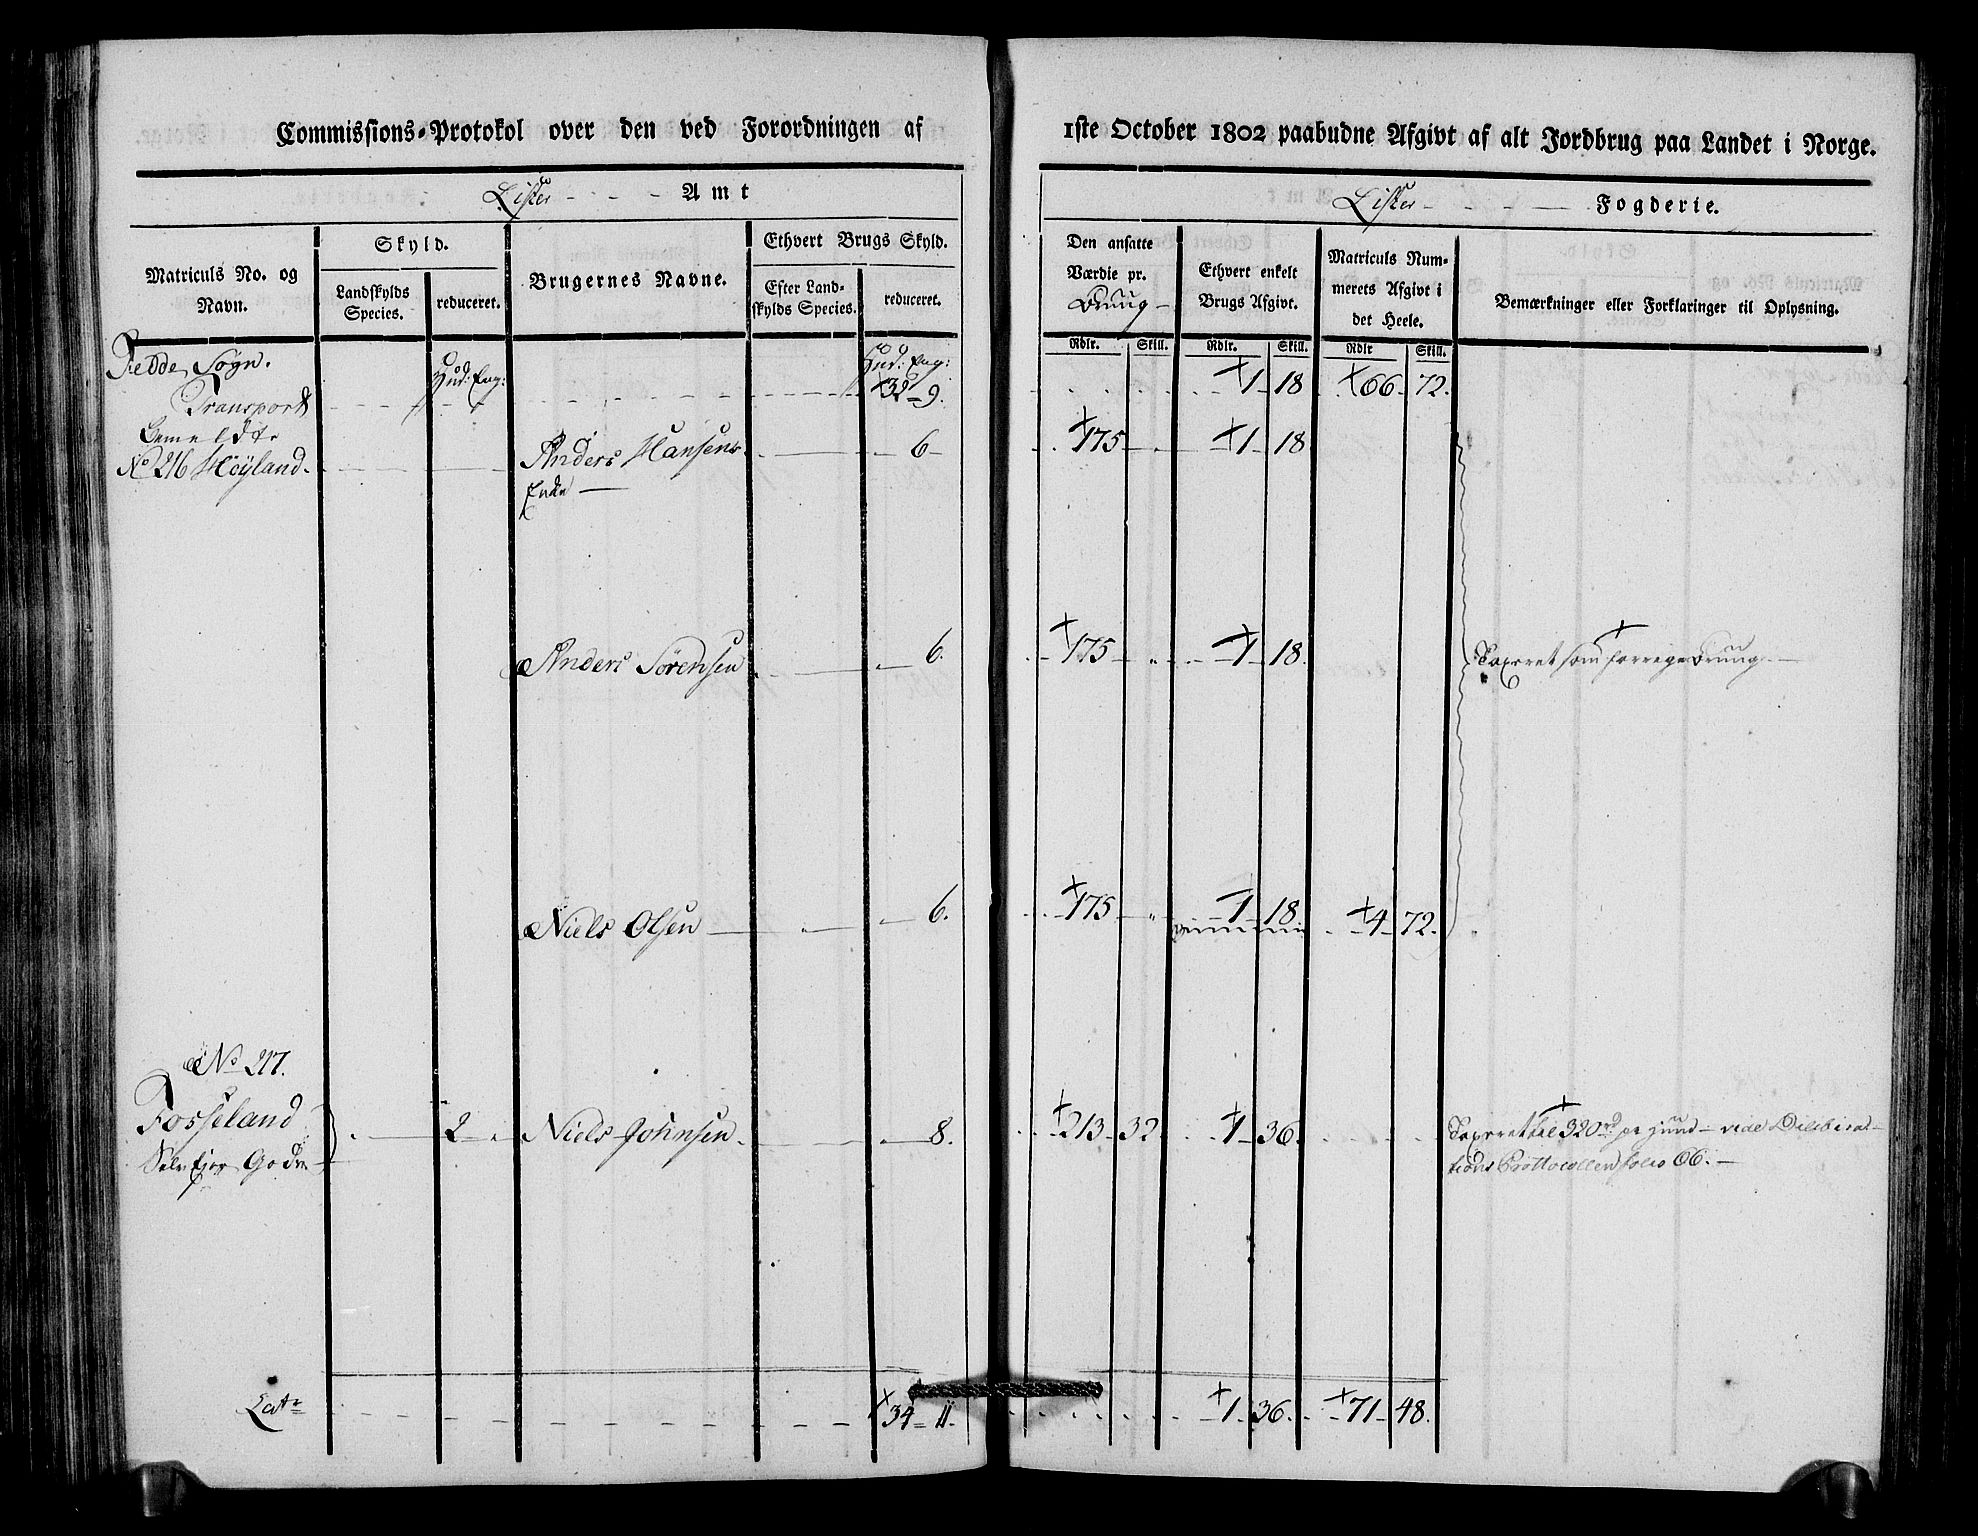 Commissions-Protokol over den ved Forordningen af
Lister Amt
Matriculs No. og
Navn.
Skyld.
Landskylds
Species.
reduceret.
Brugernes Navne.
Ethvert Brugs Skyld.
Efter Land-
skylds Species.
reduceret.
Fedde Sogn.
Hud: Eng:
Hud: Eng:
Transport
32 9.
Bemeldte
No 216 Höyland.
Anders Hansens
Enke
6
Anders Sörensen
6.
Niels Olsen
6.
No 217.
Fosseland
2
Niels Johnsen
8.
Selvejer Gods
Latr
34 11.
1ste October 1802 paabudne Afgivt af alt Jordbrug paa Landet i Norge.
Lister Fogderie.
Den ansatte
Værdie pr.
Bruug
Ethvert enkelt
Brugs Afgivt.
Matriculs Num-
merets Afgivt i
det Heele.
Bemærkninger eller Forklaringer til Oplysning.
Rdlr. Skill. Rdlr. Skill. Rdlr Skill.
1 18 66 72.
175 1 18
175 1 18. Taxeret som forrige Bruug.
175 1 18 4 72.
213 32 1 36. Taxeret til 320 rd pr Huud vide Delibera-
tions Prottocollen folio 66.
1 36. 71 48.